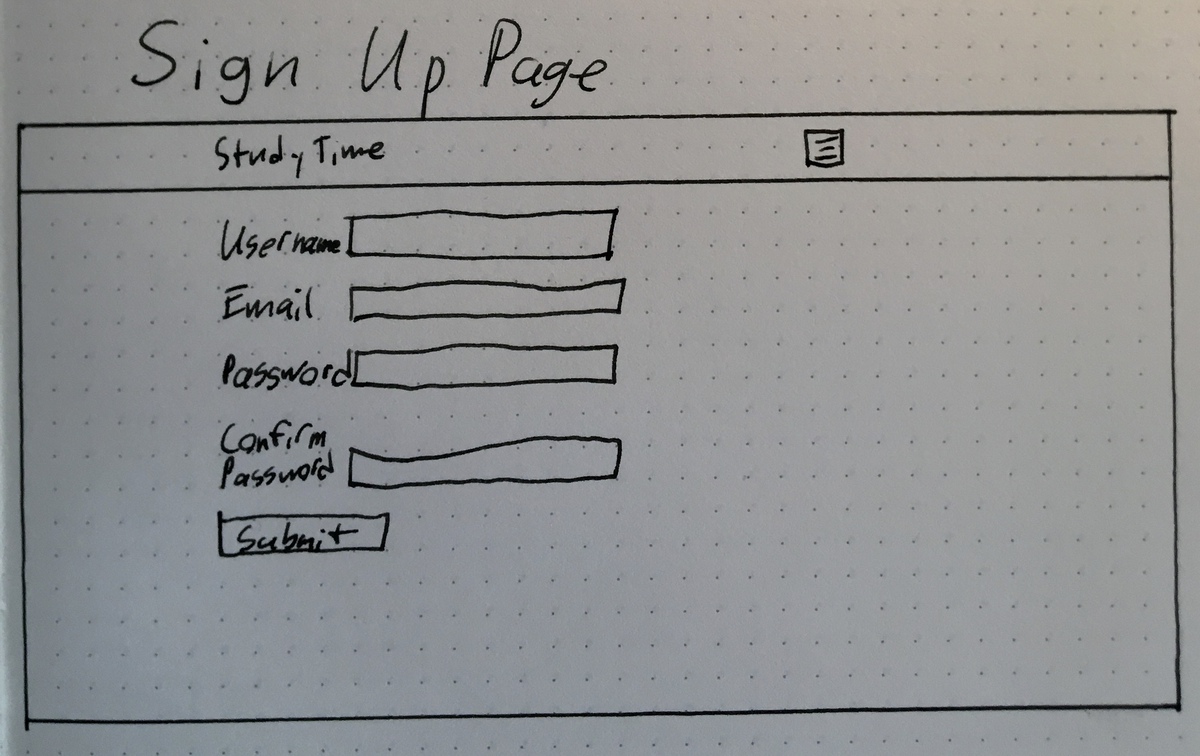 Sign Up Page
Study Time
Username
Email
Password
Confirm
Password
Submit